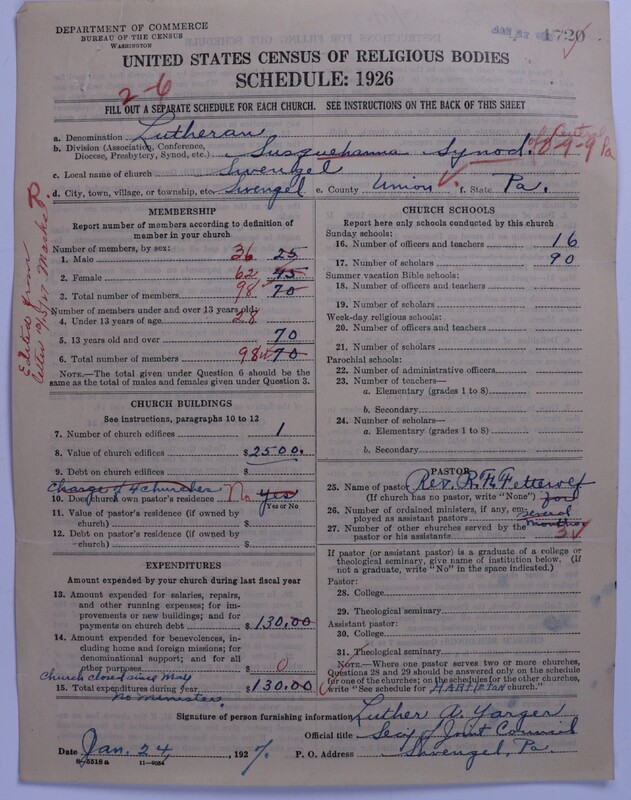 DEPARTMENT OF COMMERCE
BUREAU OF THE CENSUS
WASHINGTON
1720
UNITED STATES CENSUS OF RELIGIOUS BODIES
SCHEDULE: 1926
2-6
FILL OUT A SEPARATE SCHEDULE FOR EACH CHURCH. SEE INSTRUCTIONS ON THE BACK OF THIS SHEET
a. Denomination Lutheran
b. Division (Association, Conference, Diocese, Presbytery, Synod, etc.) Susquehanna Synod. of Central Pa 0-9-9
c. Local name of church Swengel
d. City, town, village, or township, etc. Swengel e. County Union f. State Pa.
MEMBERSHIP
Report number of members according to definition of
member in your church
Number of members, by sex:
1. Male 36 25
2. Female 62 45
3. Total number of members 98 70
Number of members under and over 13 years old:
4. Under 13 years of age 28
5. 13 years old and over 70
6. Total number of members 98 70
NOTE.—The total given under Question 6 should be
the same as the total of males and females given under Question 3.
Edited from
letter 10/5/27 Marks
CHURCH BUILDINGS
See instructions, paragraphs 10 to 12
7. Number of church edifices 1
8. Value of church edifices $2500.
9. Debt on church edifices $
Charge of 4 churches
10. Does church own pastor's residence No yes
Yes or No
11. Value of pastor's residence (if owned by
church) $
12. Debt on pastor's residence (if owned by
church) $
EXPENDITURES
Amount expended by your church during last fiscal year
13. Amount expended for salaries, repairs,
and other running expenses; for im-
provements or new buildings; and for
payments on church debt $130.00
14. Amount expended for benevolences,
including home and foreign missions; for
denominational support; and for all
other purposes $ 0
Church closed since May
15. Total expenditures during year $130.00
no minister.
CHURCH SCHOOLS
Report here only schools conducted by this church
Sunday schools:
16. Number of officers and teachers 16
17. Number of scholars 90
Summer vacation Bible schools:
18. Number of officers and teachers
19. Number of scholars
Week-day religious schools:
20. Number of officers and teachers
21. Number of scholars
Parochial schools:
22. Number of administrative officers
23. Number of teachers—
a. Elementary (grades 1 to 8)
b. Secondary
24. Number of scholars—
a. Elementary (grades 1 to 8)
b. Secondary
PASTOR
25. Name of pastor Rev. R. F. Fetterolf
(If church has no pastor, write "None") for
26. Number of ordained ministers, if any, em-
ployed as assistant pastors several
27. Number of other churches served by the months
pastor or his assistants 3
If pastor (or assistant pastor) is a graduate of a college or
theological seminary, give name of institution below. (If
not a graduate, write "No" in the space indicated.)
Pastor:
28. College
29. Theological seminary
Assistant pastor:
30. College
31. Theological seminary
NOTE.—Where one pastor serves two or more churches,
Questions 28 and 29 should be answered only on the schedule
for one of the churches; on the schedules for the other churches,
write "See schedule for HARTLETON church."
Signature of person furnishing information Luther A. Yarger
Official title Sec'y Joint Council
Date Jan. 24, 1927. P. O. Address Swengel, Pa.
8-5518a 11-9054